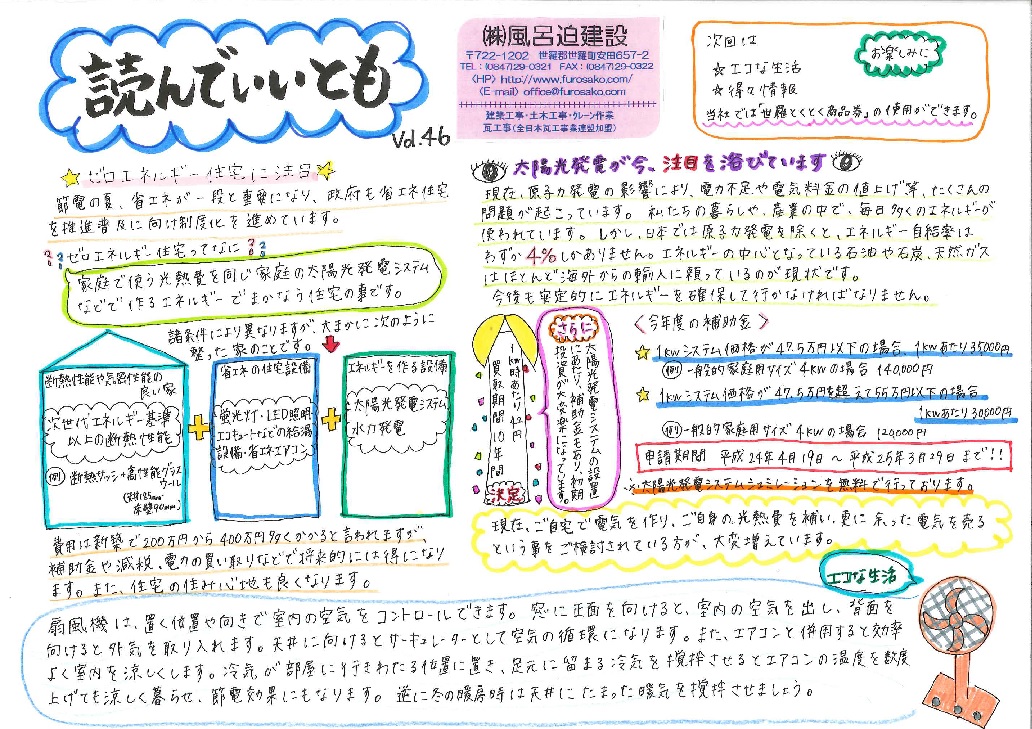 読んでいいとも
Vol.46
㈱風呂迫建設
〒722-1202 世羅郡世羅町安田657-2
TEL:(0847)29-0321 FAX:(0847)29-0322
〈HP〉http://www.furosako.com/
〈E-mail〉office@furosako.com
建築工事・土木工事・クレーン作業
瓦工事(全日本瓦工事業連盟加盟)
次回は
お楽しみに
☆エコな生活
☆得々情報
当社では「世羅とくとく商品券」の使用ができます。
☆ゼロエネルギー住宅に注目☆
節電の夏、省エネが一段と重要になり、政府も省エネ住宅
を推進普及に向け制度化を進めています。
??ゼロエネルギー住宅ってなに??
家庭で使う光熱費を同じ家庭の太陽光発電システム
などで作るエネルギーでまかなう住宅の事です。
諸条件により異なりますが、大まかに次のように
整った家のことです。
断熱性能や気密性能の
良い家
次世代エネルギー基準
以上の断熱性能
例 断熱サッシ+高性能グラス
ウール
(天井185mm
床壁90mm)
+
省エネの住宅設備
蛍光灯・LED照明
エコキュートなどの給湯
設備・省エネエアコン
+
エネルギーを作る設備
太陽光発電システム
水力発電
費用は新築で200万円から400万円多くかかると言われますが、
補助金や減税、電力の買い取りなどで将来的には得になり
ます。また、住宅の住み心地も良くなります。
太陽光発電が今、注目を浴びています
現在、原子力発電の影響により、電力不足や電気料金の値上げ等、たくさんの
問題が起こっています。私たちの暮らしや、産業の中で、毎日多くのエネルギーが
使われています。しかし、日本では原子力発電を除くと、エネルギー自給率は
わずか4%しかありません。エネルギーの中心となっている石油や石炭、天然ガス
はほとんど海外からの輸入に頼っているのが現状です。
今後も安定的にエネルギーを確保して行かなければなりません。
1kw時あたり42円
買取期間10年間
決定
さらに
太陽光発電システムの設置
にあたり、補助金もあり、初期
投資費が大変楽になっています。
〈今年度の補助金〉
☆1kwシステム価格が47.5万円以下の場合 1kwあたり35000円
例 一般的家庭用サイズ4kwの場合 140,000円
☆1kwシステム価格が47.5万円を超えて55万円以下の場合
1kwあたり30,000円
例 一般的家庭用サイズ4kwの場合 120,000円
申請期間 平成24年4月19日〜平成25年3月29日まで!!
※太陽光発電システムシュミレーションを無料で行っております。
現在、ご自宅で電気を作り、ご自身の光熱費を補い、更に余った電気を売る
という事をご検討されている方が、大変増えています。
エコな生活
扇風機は、置く位置や向きで室内の空気をコントロールできます。窓に正面を向けると、室内の空気を出し、背面を
向けると外気を取り入れます。天井に向けるとサーキュレーターとして空気の循環になります。また、エアコンと併用すると効率
よく室内を涼しくします。冷気が部屋に行きわたる位置に置き、足元に留まる冷気を攪拌させるとエアコンの温度を数度
上げても涼しく暮らせ、節電効果にもなります。逆に冬の暖房時は天井にたまった暖気を攪拌させましょう。